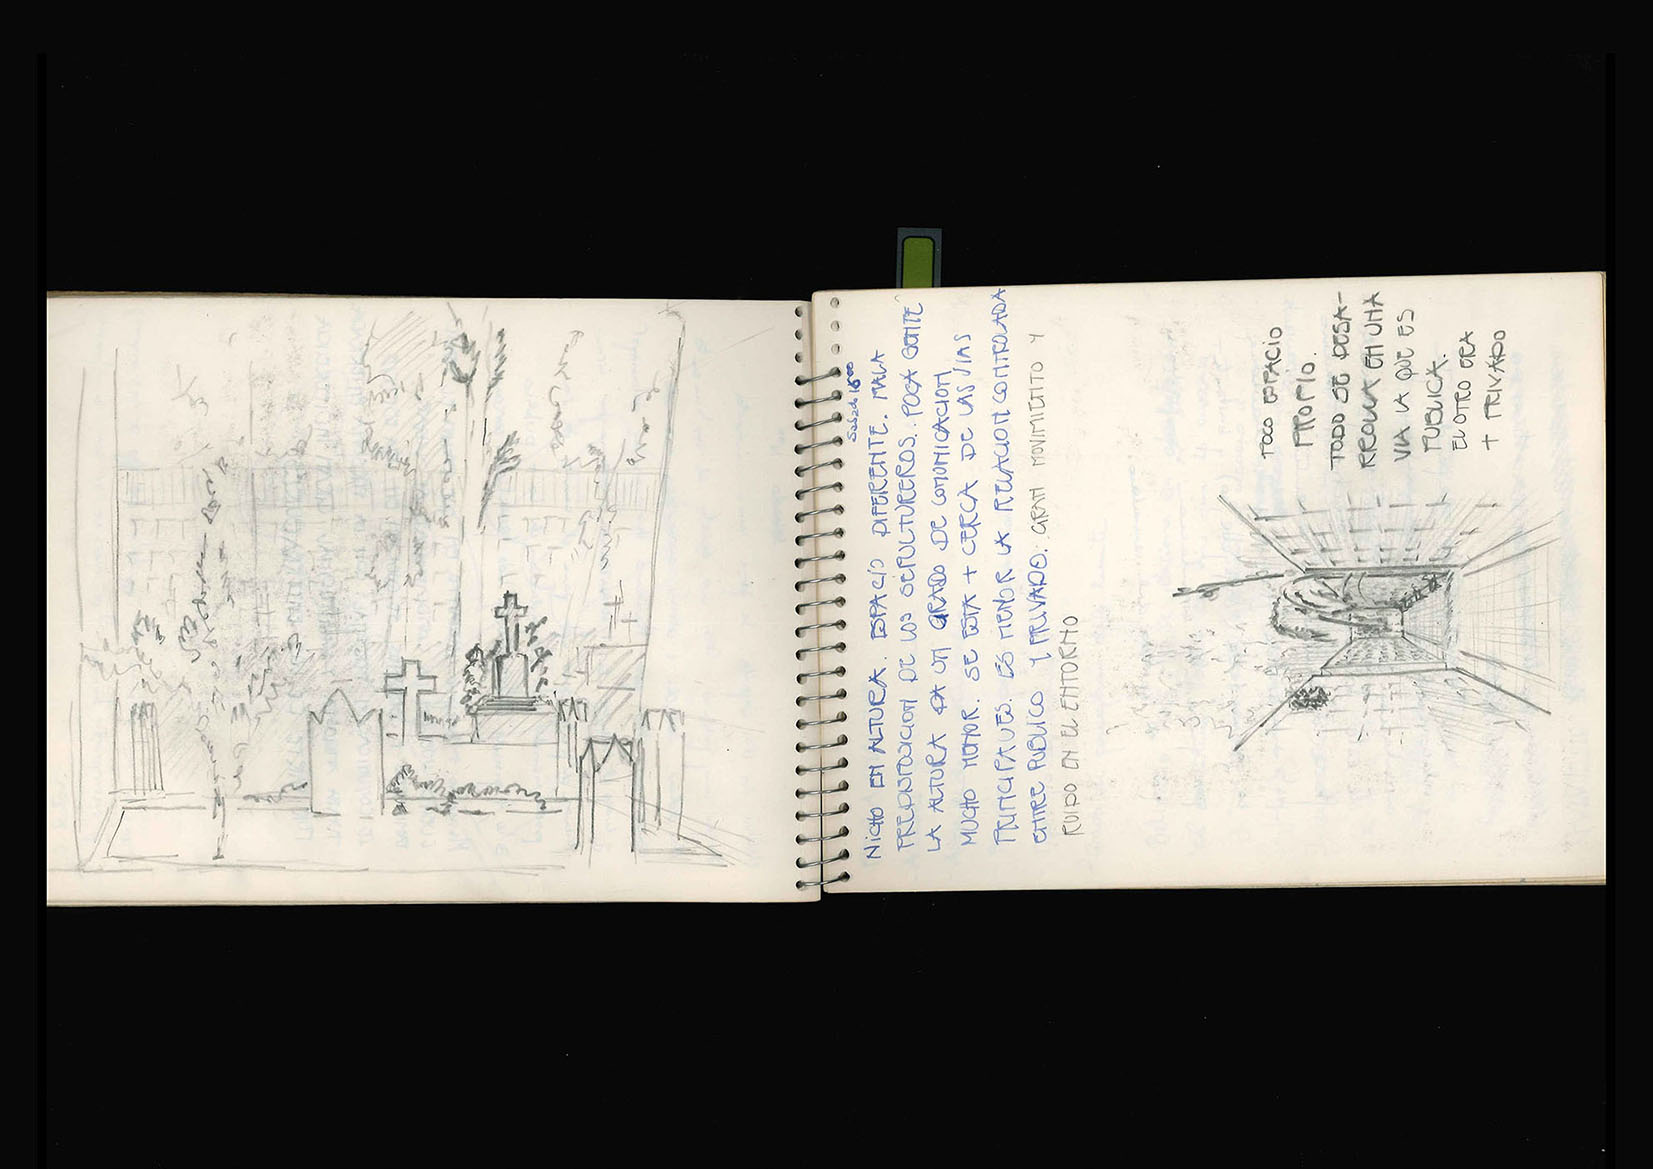 Sabado 16:00
NICHO EN ALTURA. ESPACIO DIFERENTE. MALA
PREDISPOSICION DE LOS SEPULTUREROS. POCA GENTE
LA ALTURA DA UN GRADO DE COMUNICACION
MUCHO MENOR. SE ESTA + CERCA DE LAS VIAS
PRINCIPALES. ES MENOR LA RELACION CONTROLADA
ENTRE PUBLICO Y PRIVADO. GRAN MOVIMIENTO Y
RUIDO EN EL ENTORNO
POCO ESPACIO
PROPIO.
TODO SE DESA-
RROLLA EN UNA
VIA LA QUE ES
PUBLICA.
EL OTRO ERA
+ PRIVADO